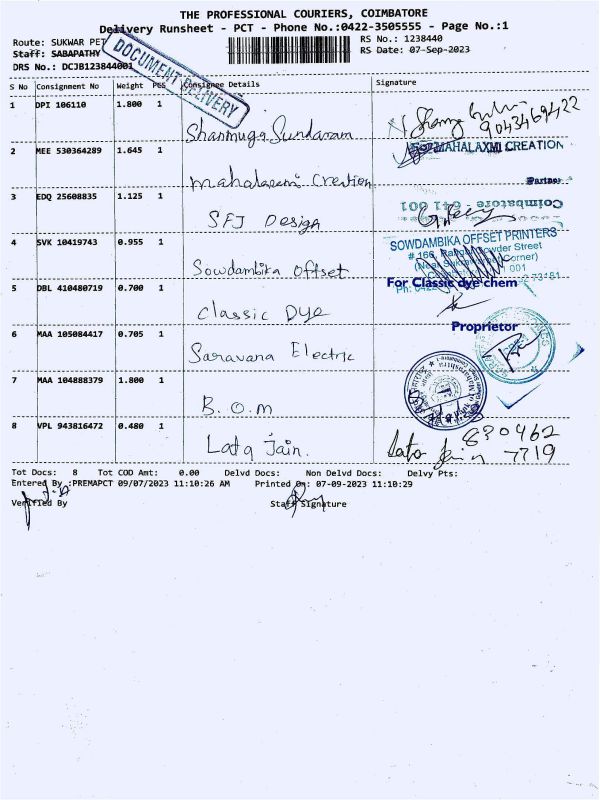 THE PROFESSIONAL COURIERS, COIMBATORE
Delivery Runsheet - PCT - Phone No.:0422-3505555 - Page No.:1
Route: SUKWAR PET
RS No.: 1238440
Staff: SABAPATHY
RS Date: 07-Sep-2023
DRS No.: DCJB123844001
DOCUMENT DELIVERY
S No Consignment No Weight PCS Consignee Details Signature
1 DPI 106110 1.800 1
Shanmuga Sundaram
9043469422
2 MEE 530364289 1.645 1
For MAHALAXMI CREATION
Mahalaxmi Creation
Partner
3 EDQ 25608835 1.125 1
Coimbatore - 641 001
SFJ Design
4 SVK 10419743 0.955 1
SOWDAMBIKA OFFSET PRINTERS
Sowdambika Offset
5 DBL 410480719 0.700 1
For Classic dye chem
Classic Dye
Proprietor
6 MAA 105084417 0.705 1
Saravana Electric
7 MAA 104888379 1.800 1
B.O.M
8 VPL 943816472 0.480 1
Lata Jain.
Lata Jain
830462
7719
Tot Docs: 8 Tot COD Amt: 0.00 Delvd Docs: Non Delvd Docs: Delvy Pts:
Entered By :PREMAPCT 09/07/2023 11:10:26 AM Printed On: 07-09-2023 11:10:29
Verified By Staff Signature